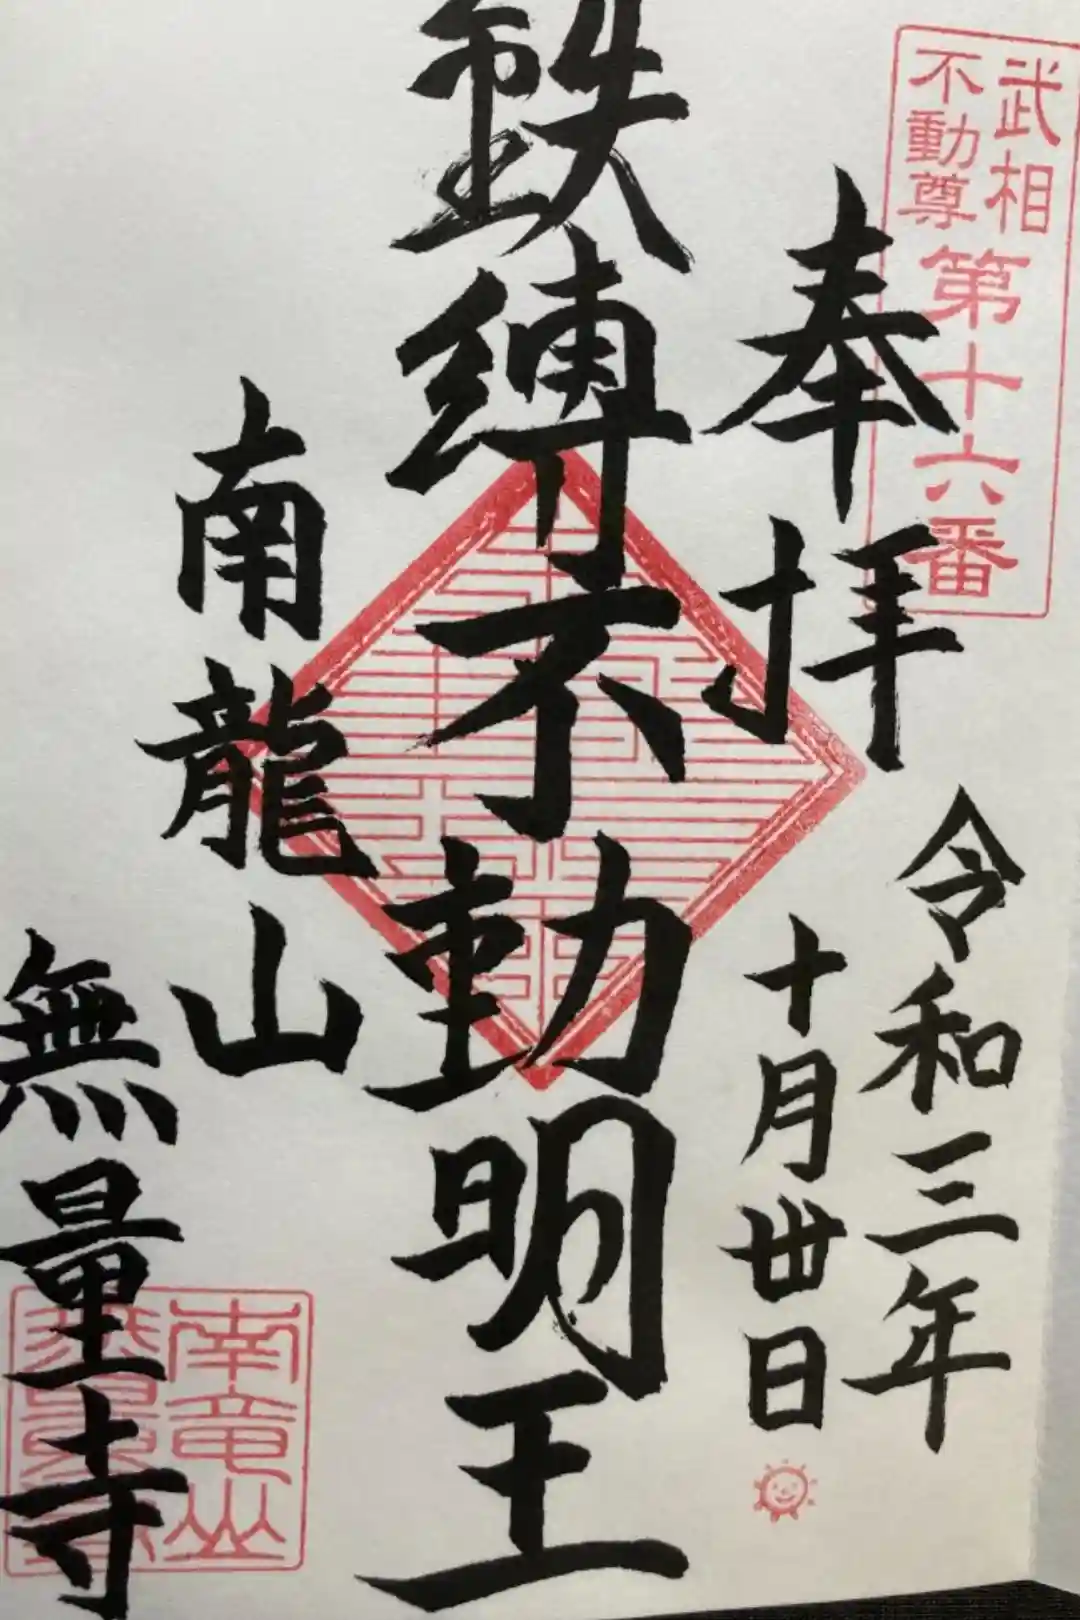 武相
不動尊
第十六番
奉拝
令和三年
十月丗日
鉄縛不動明王
南龍山
無量寺
南竜山